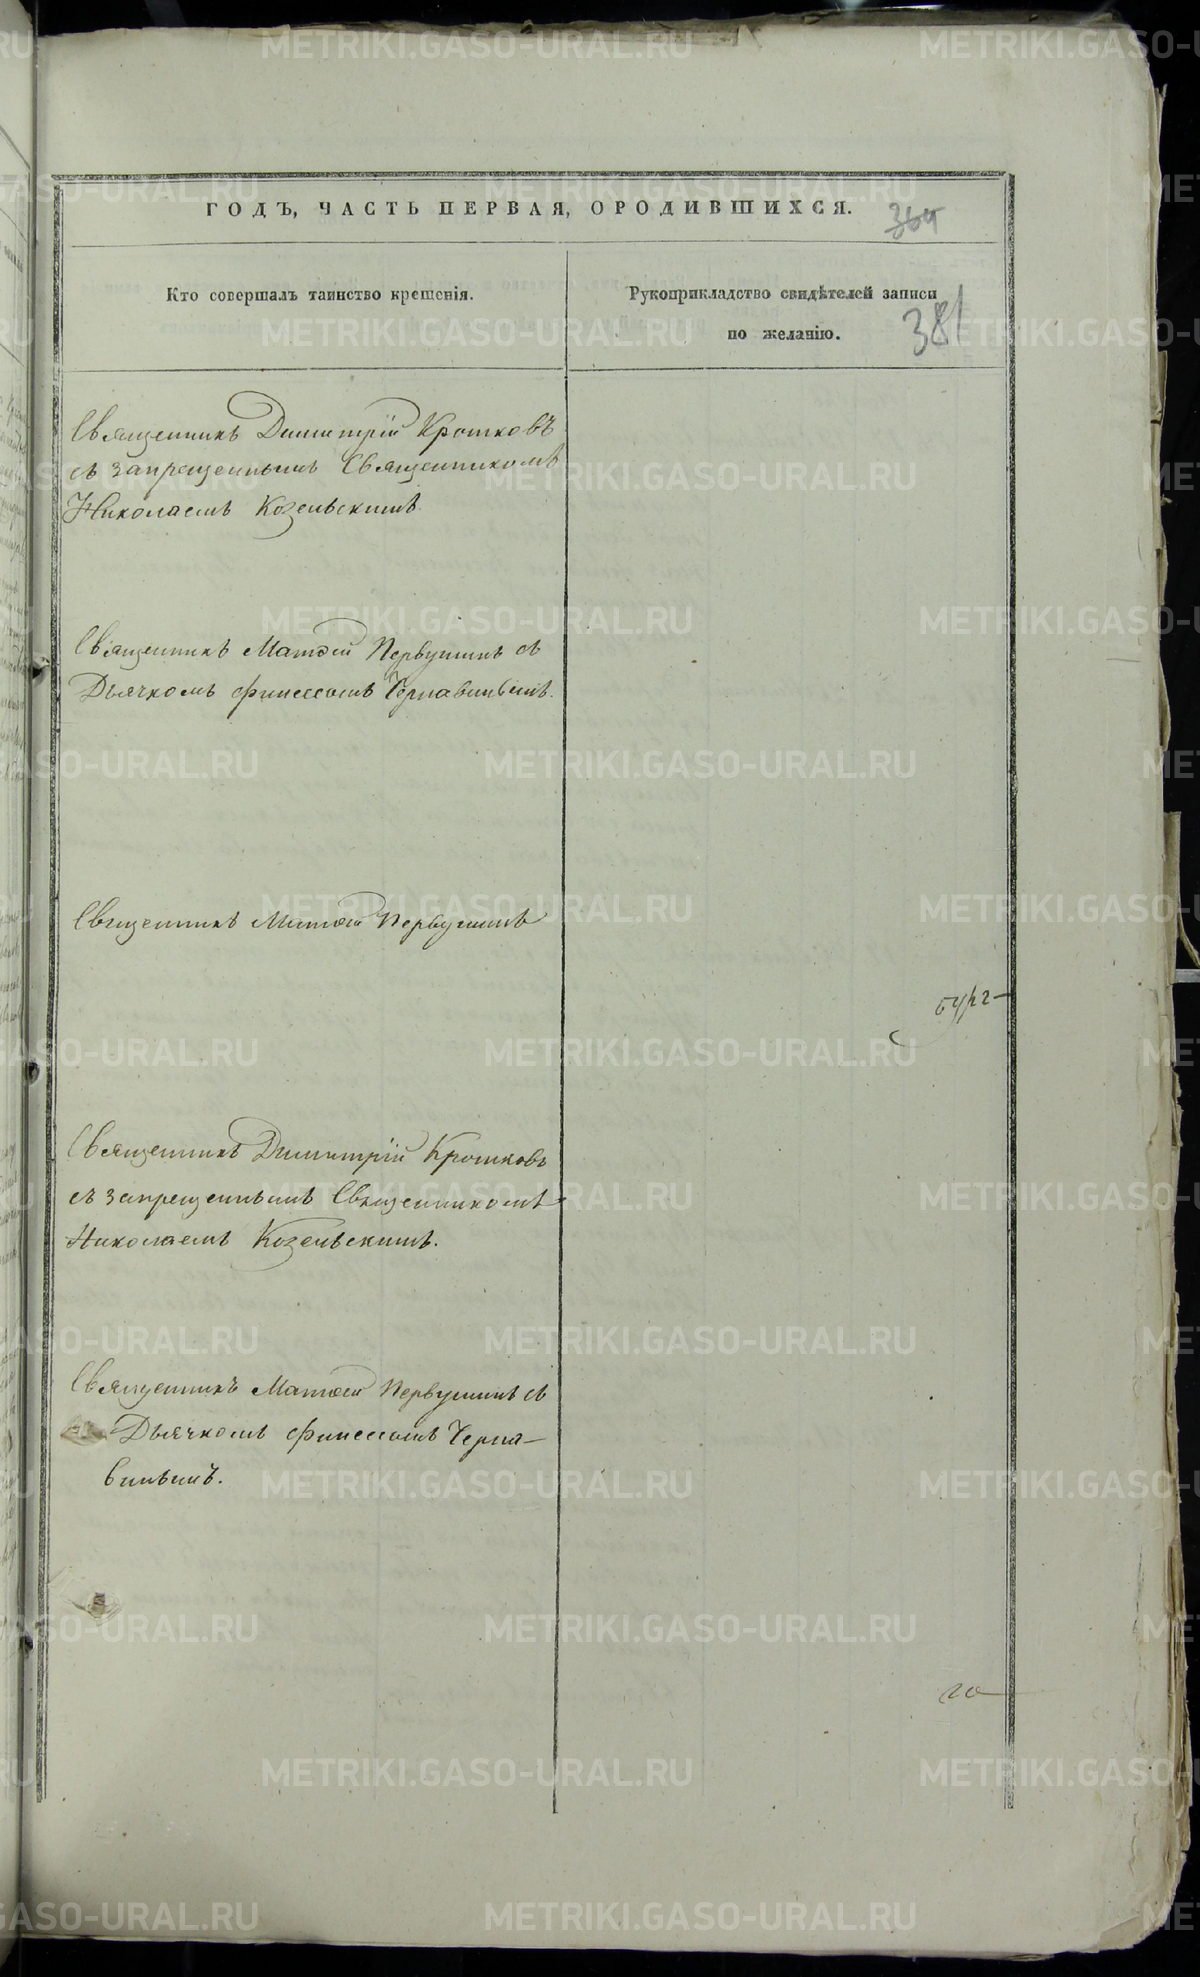 ГОДЪ, ЧАСТЬ ПЕРВАЯ, О РОДИВШИХСЯ.
364
Кто совершалъ таинство крещенія.
Рукоприкладство свидѣтелей записи
по желанію.
381
Священникъ Димитрій Кротковъ
съ запрещеннымъ Священникомъ
Николаемъ Козельскимъ.
Священникъ Матѳей Первушинъ съ
Дьячкомъ Финеесомъ Чернавинымъ.
Священникъ Матѳей Первушинъ
Священникъ Димитрій Кротковъ
съ запрещеннымъ Священникомъ
Николаемъ Козельскимъ.
Священникъ Матѳей Первушинъ съ
Дьячкомъ Финеесомъ Черна-
винымъ.
METRIKI.GASO-URAL.RU